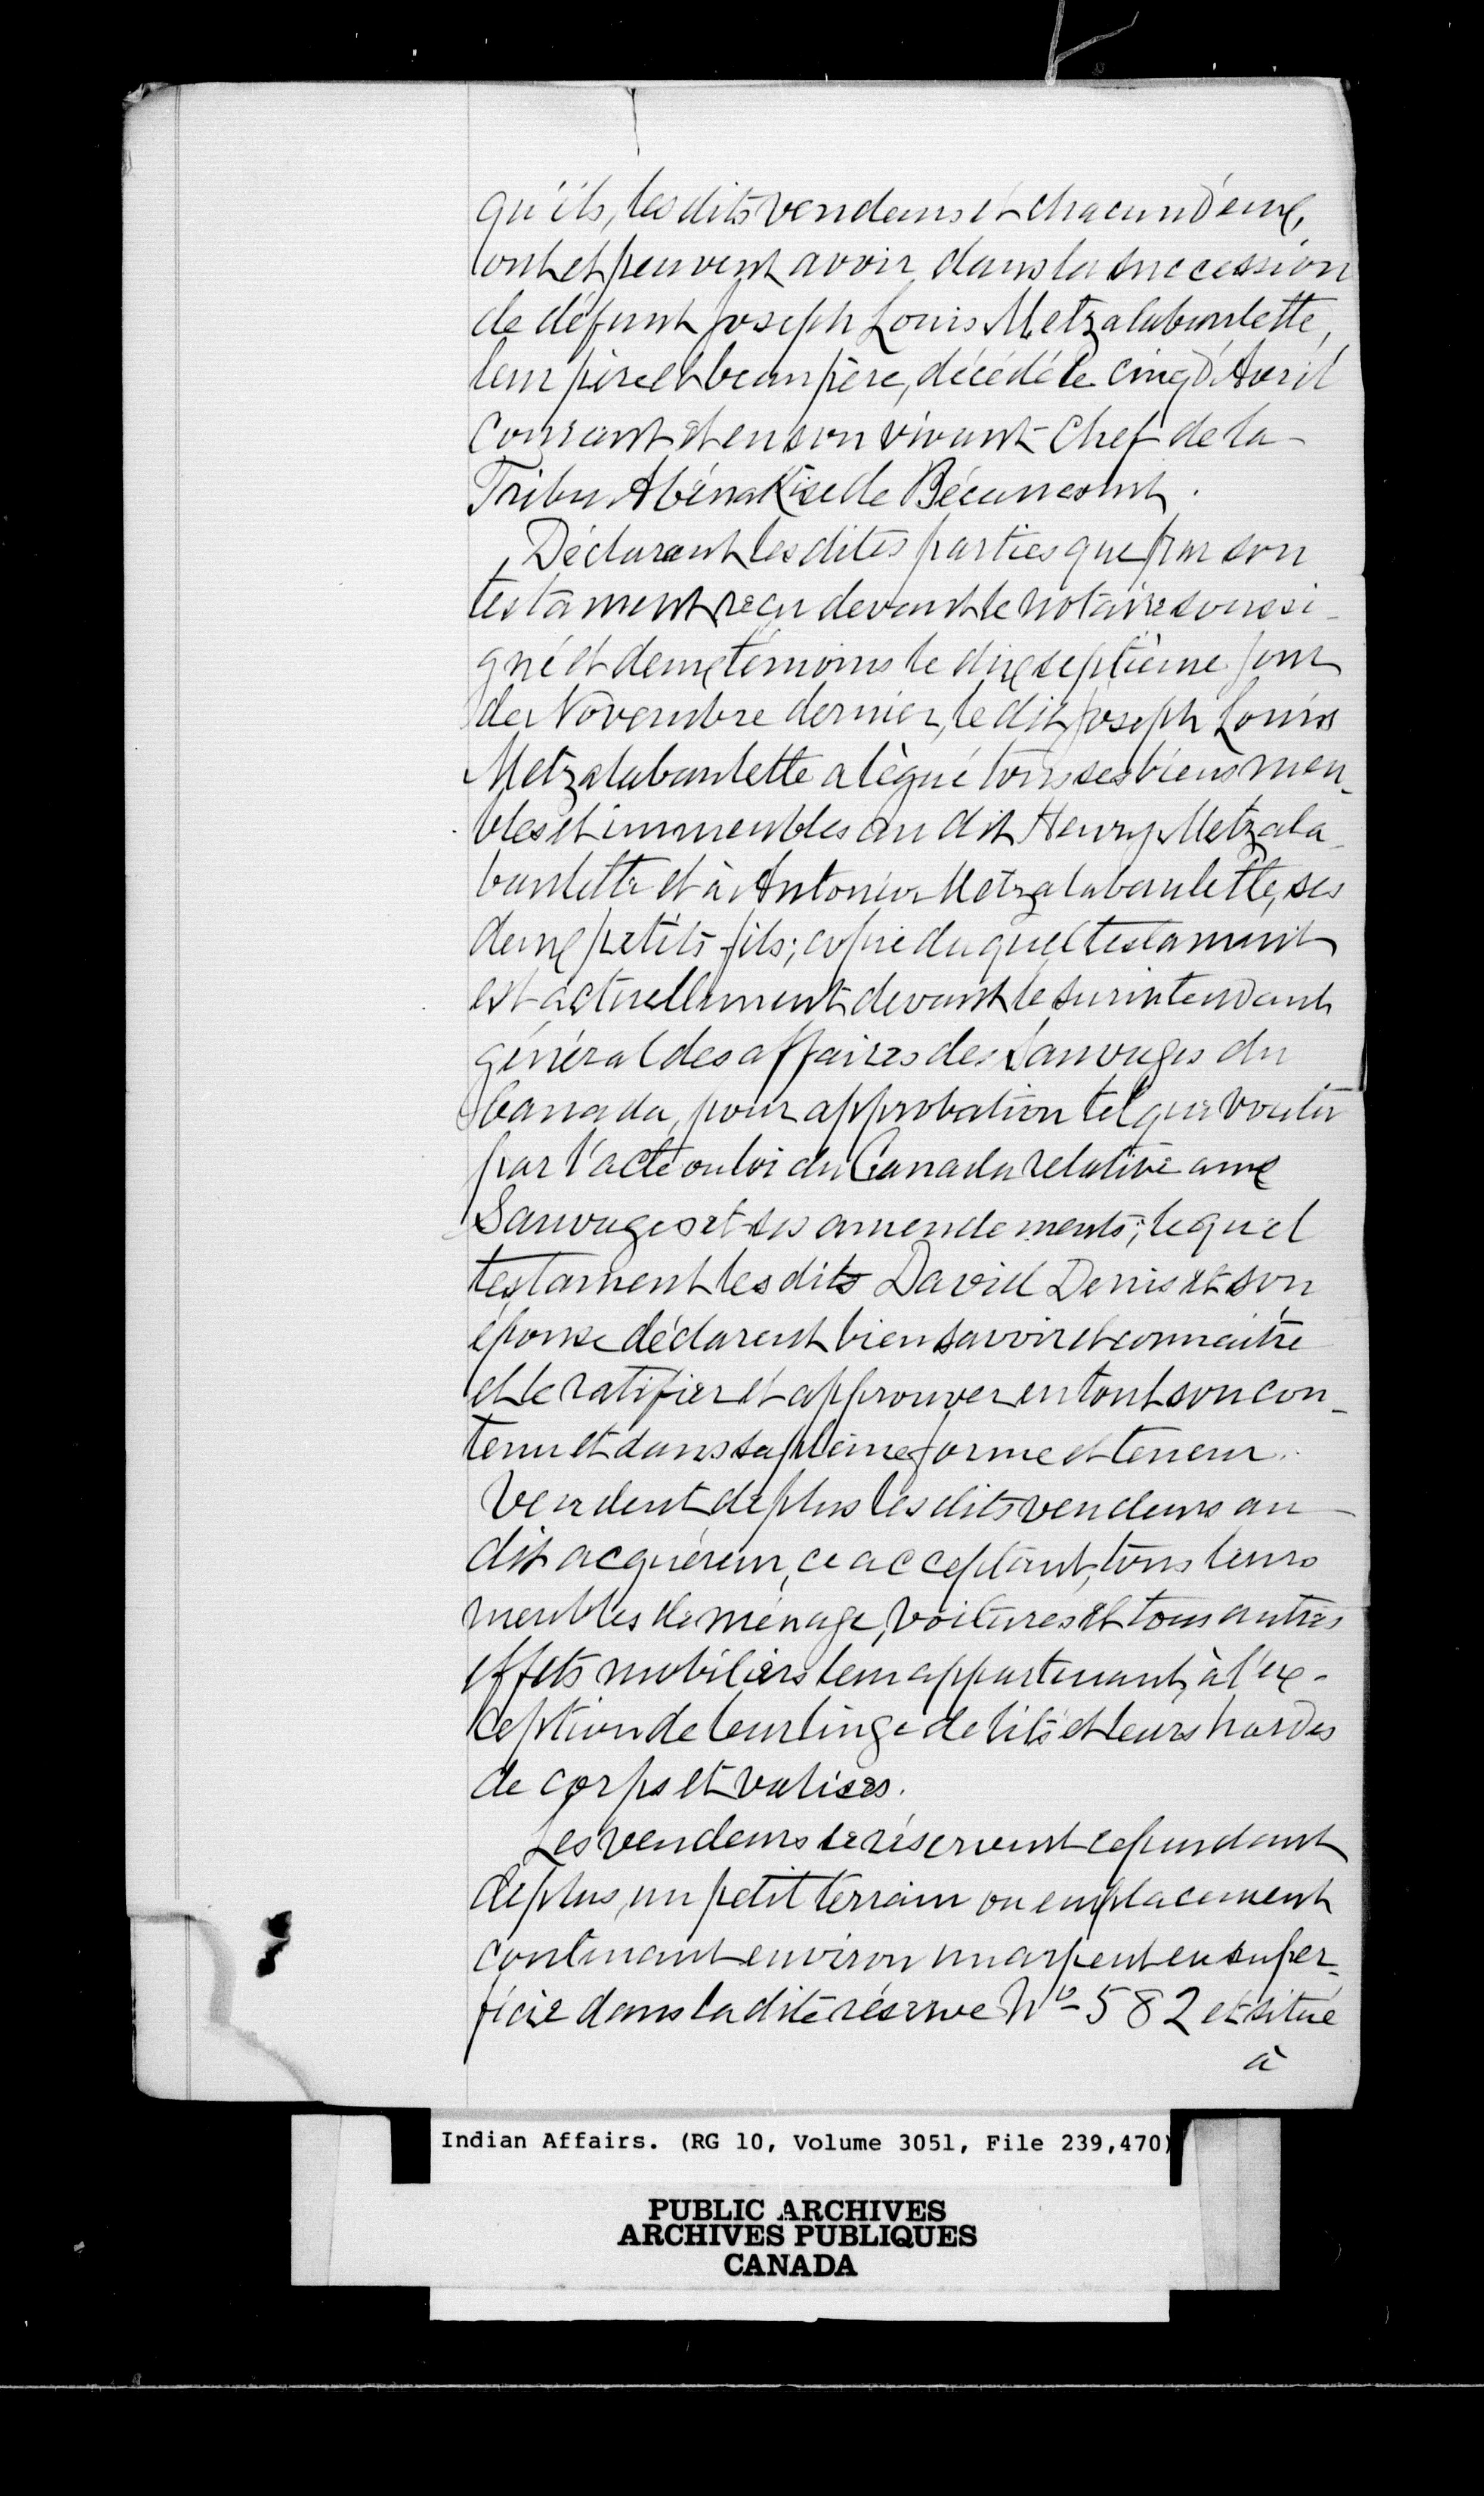 qu'ils, les dits vendeurs et chacun d'eux,
ont et peuvent avoir dans la succession
de défunt Joseph Louis Metzalabanlette,
leur père et beau père, décédé le cinq d'Avril
courant et en son vivant Chef de la
Tribu Abénakise de Bécancourt.
Déclarant les dites parties que par son
testament reçu devant le notaire soussi-
gné et deux témoins le dix septième jour
de Novembre dernier, le dit Joseph Louis
Metzalabanlette a légué tous ses biens meu-
bles et immeubles au dit Henry Metzala-
banlette et à Antonin Metzalabanlette, ses
deux petits-fils; copie duquel testament
est actuellement devant le surintendant
général des affaires des Sauvages du
Canada, pour approbation tel que voulu
par l'acte ou loi du Canada relative aux
Sauvages et ses amendements; lequel
testament les dits David Denis et son
épouse déclarent bien savoir et connaitre
et le ratifier et approuver en tout son con-
tenu et dans sa pleine forme et teneur.
Vendent de plus les dits vendeurs au
dit acquéreur, ce acceptant, tous leurs
meubles de ménage, voitures et tous autres
effets mobiliers leur appartenant, à l'ex-
ception de leur linge de lits et leurs hardes
de corps et valises.
Les vendeurs se réservent cependant
de plus, un petit terrain ou emplacement
contenant environ un arpent en super-
ficie dans la dite réserve No 582 et situé
à
Indian Affairs. (RG 10, Volume 3051, File 239,470)
PUBLIC ARCHIVES
ARCHIVES PUBLIQUES
CANADA